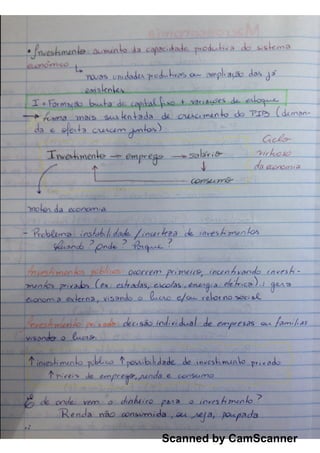 • Investimento aumento da capacidade produtiva do sistema
econômico ↳
novas unidades produtivas ou ampliação das já
existentes
I = Formação bruta de capital fixo + variações de estoque
→ forma mais sustentada de crescimento do PIB (deman-
da e oferta crescem juntos)
Ciclo
Investimento → emprego → salário virtuoso
↓ da economia
consumo
motor da economia
- Problema instabilidade / incerteza de investimentos
Quando? Onde? Porque?
Investimentos públicos ocorrem primeiro, incentivando investi-
mentos privados (ex: estradas, escolas, energia elétrica): gera
economia externa, visando o lucro e/ou retorno social
Investimento privado decisão individual de empresas ou famílias
visando o lucro.
↑ investimento público ↑ possibilidade de investimento privado
↑ níveis de emprego, renda e consumo
de onde vem o dinheiro para o investimento?
Renda não consumida, ou seja, poupada
Scanned by CamScanner